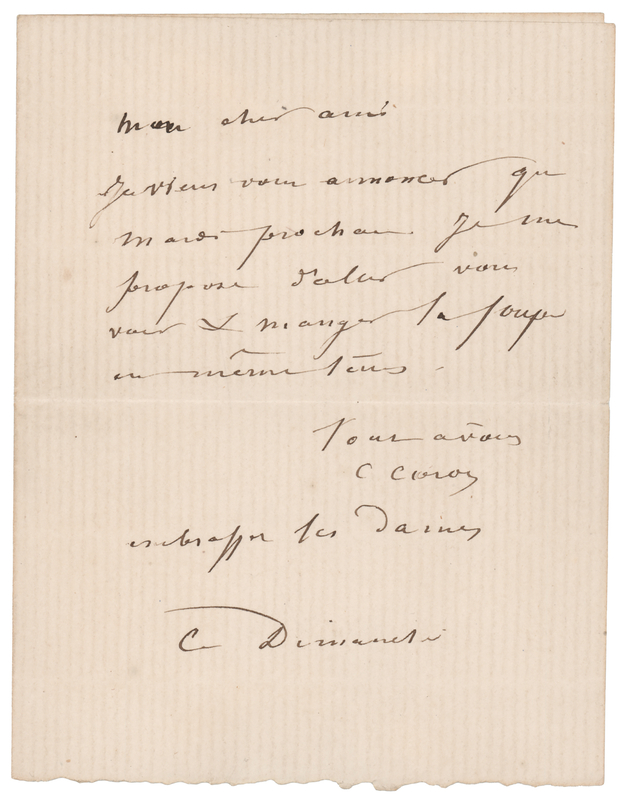 mon cher ami
Je viens vous annoncer que
mardi prochain Je me
propose d'aller vous
voir & manger la soupe
en même tems.
Tout a vous
C Corot
embrasser les Dames
Ce Dimanche